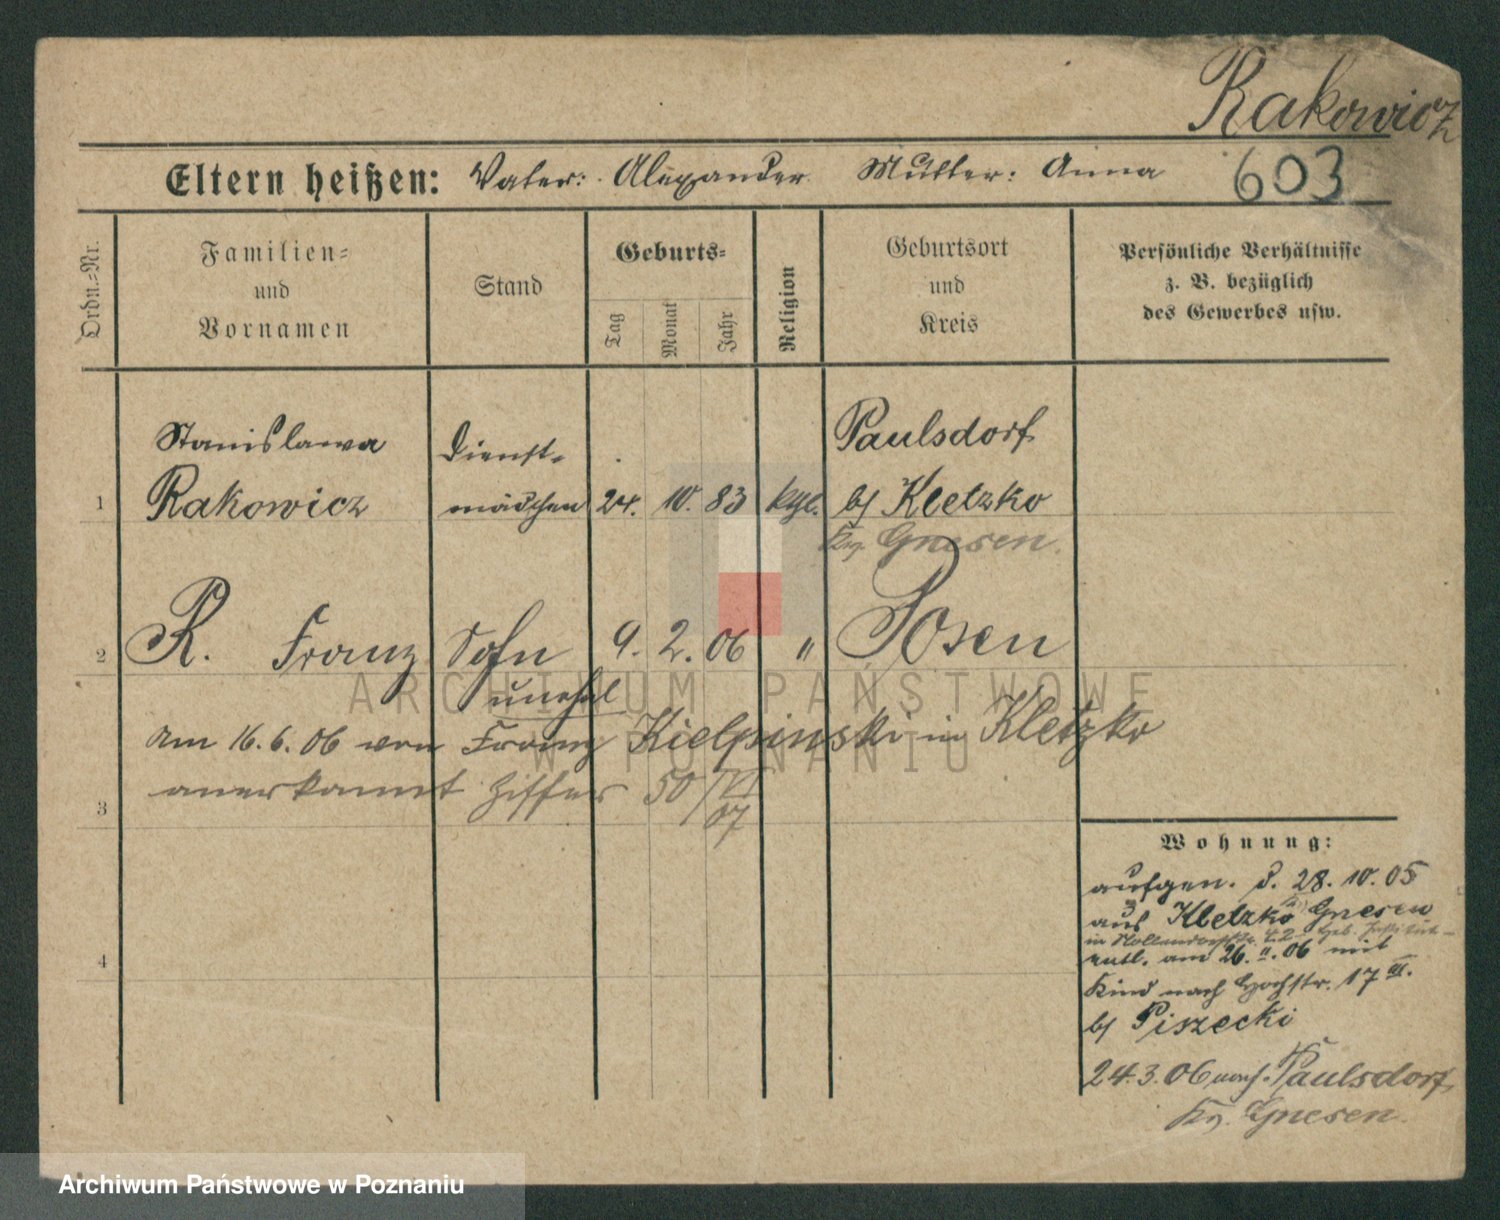 Rakowicz
Eltern heißen: Vater: Alexander Mutter: Anna 603
Ordn.=Nr.
Familien=
und
Vornamen
Stand
Geburts=
Tag
Monat
Jahr
Religion
Geburtsort
und
Kreis
Persönliche Verhältnisse
z. B. bezüglich
des Gewerbes usw.
Stanislawa Dienst- Paulsdorf
1 Rakowicz mädchen 24. 10. 83 kgl. b/ Kletzko
Krs. Gnesen.
2 R. Franz Sohn 9. 2. 06 " Posen
unehel
Am 16.6.06 von Franz Kielpinski in Kletzko
anerkannt Ziffer 50/VI
07
3
4
Wohnung:
aufgen. d. 28. 10. 05
aus Kletzko Gnesen
in
entl. am 26. II. 06 mit
Kind nach Hochstr. 17 III.
b/ Piszecki
24.3.06 nach Paulsdorf
Kr. Gnesen.
ARCHIWUM PAŃSTWOWE
W POZNANIU
Archiwum Państwowe w Poznaniu